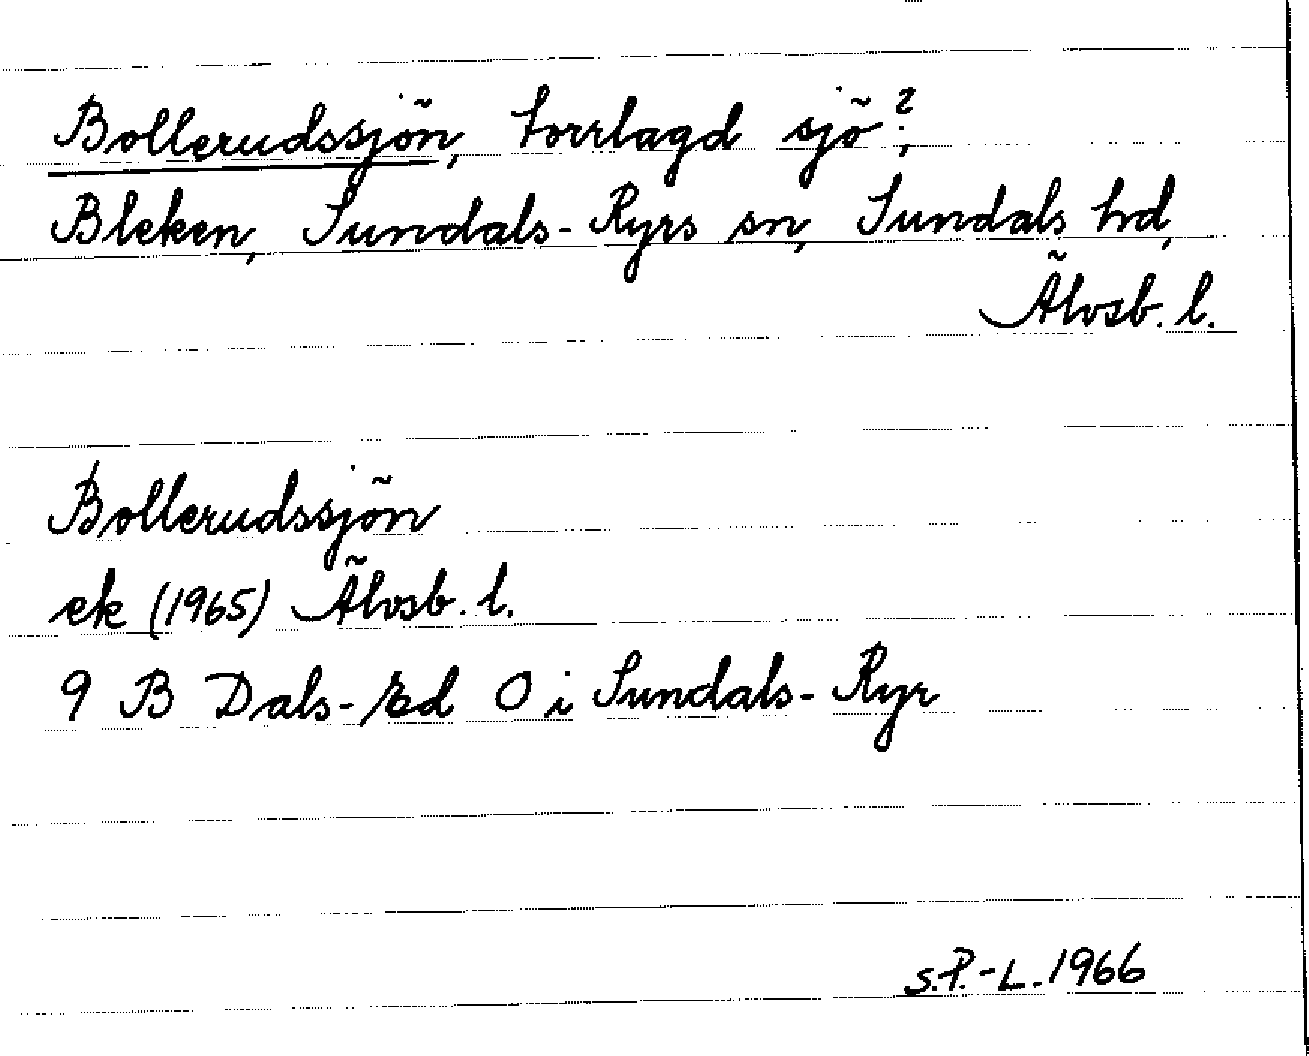 Bollerudssjön, torrlagd sjö?;
Bleken, Sundals-Ryrs sn, Sundals hd,
Älvsb. l.
Bollerudssjön
ek (1965) Älvsb. l.
9 B Dals-Ed O i Sundals-Ryr
S.P.-L. 1966